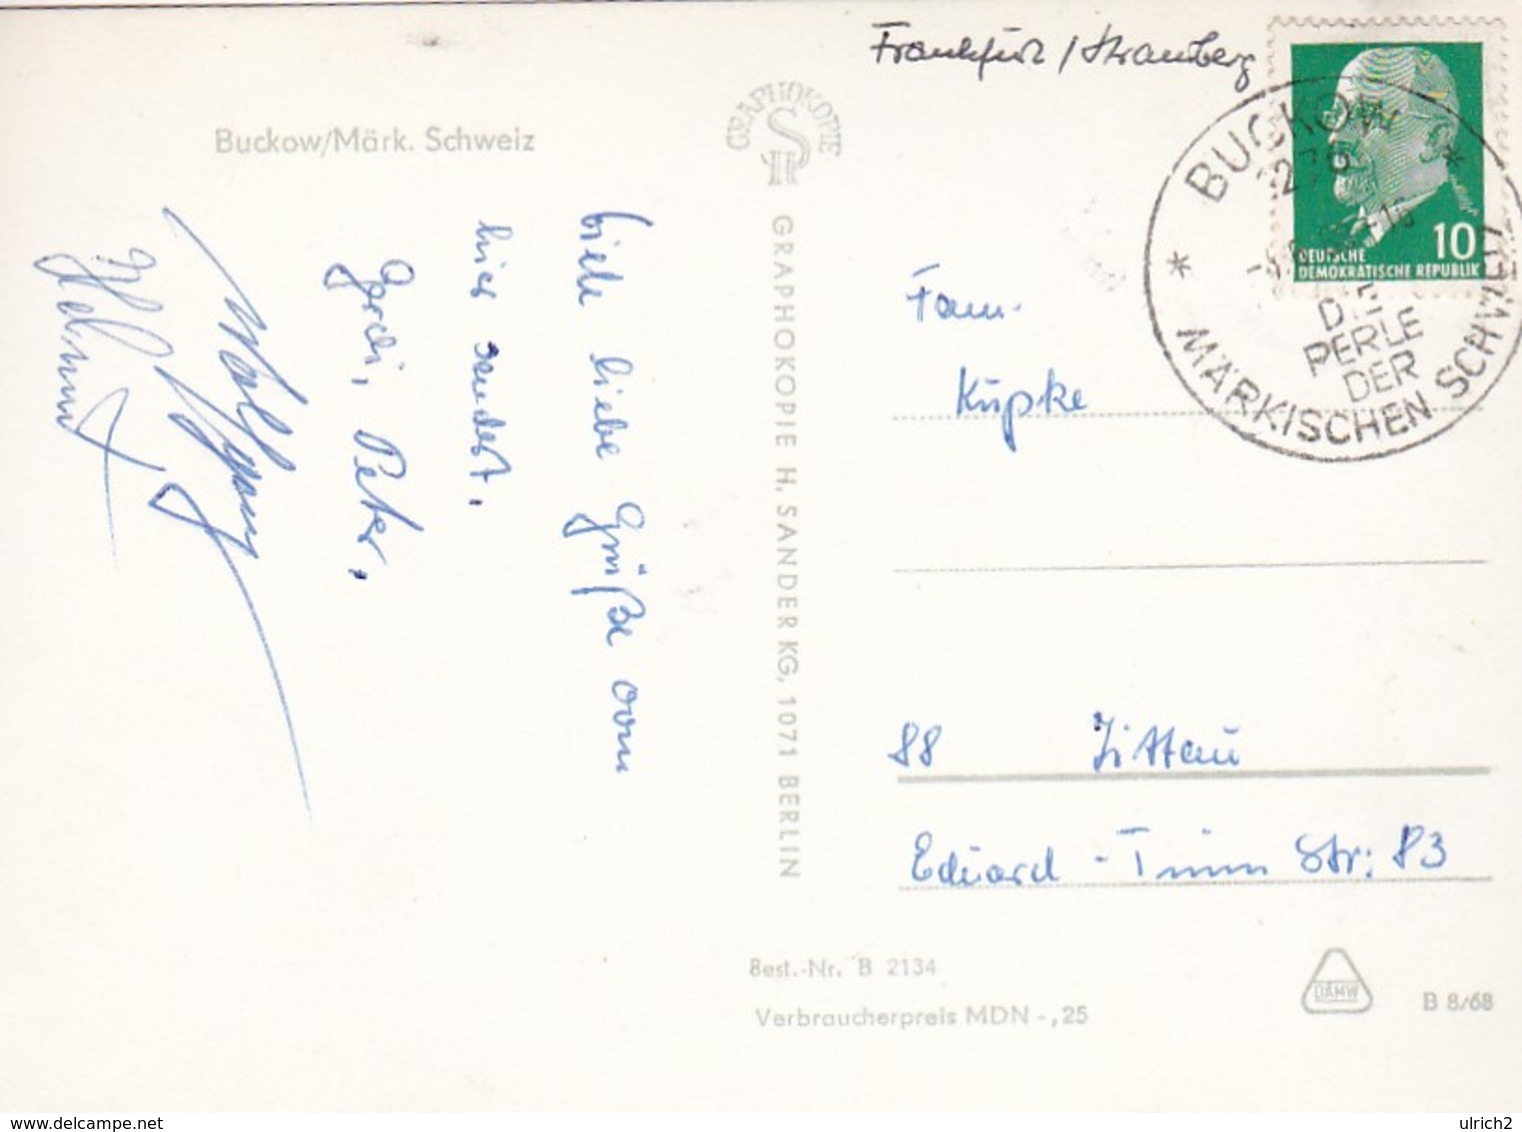 Frankfurt / Strausberg
Buckow/Märk. Schweiz
GRAPHOKOPIE
BUCKOW
* MÄRKISCHEN SCHWEIZ *
DIE
PERLE
DER
10
DEUTSCHE
DEMOKRATISCHE REPUBLIK
viele liebe Grüße von
hier sendet.
Gerdi, Peter,
Wolfgang
Helmut
GRAPHOKOPIE H. SANDER KG, 1071 BERLIN
Fam.
Küpke
88 Zittau
Eduard - Timm Str: 83
Best.-Nr. B 2134
Verbraucherpreis MDN -,25
DAMW
B 8/68
delcampe.net
ulrich2